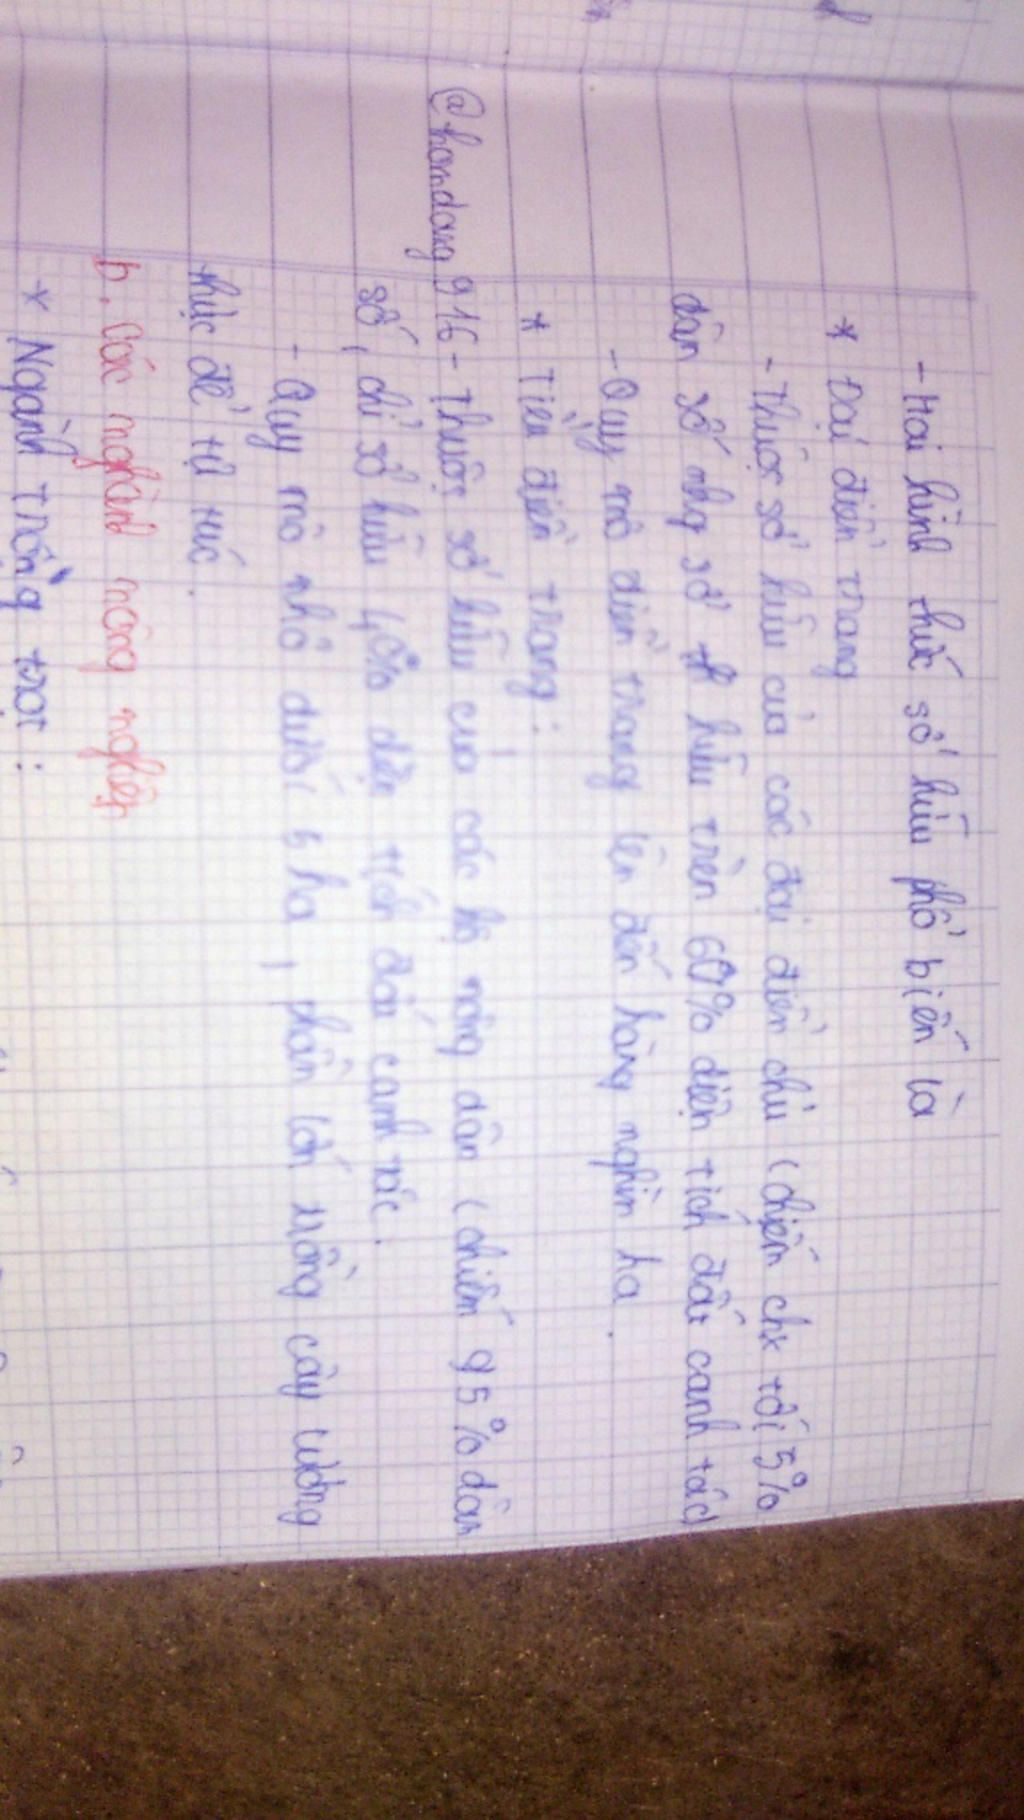 - Hai hình thức sở hữu phổ biến là
* Đại điền trang
- Thuộc sở hữu của các đại điền chủ (chiếm chx tới 5%
dân số nhg sở hữu trên 60% diện tích đất canh tác)
- Quy mô điền trang lên đến hàng nghìn ha.
* Tiểu điền trang:
@homdang916 - Thuộc sở hữu của các hộ nông dân (chiếm 95% dân
số, chỉ sở hữu 40% diện tích đất canh tác.
- Quy mô nhỏ dưới 5 ha, phần lớn trồng cây lương
thực để tự túc.
b. Các nghành nông nghiệp
* Ngành trồng trọt: